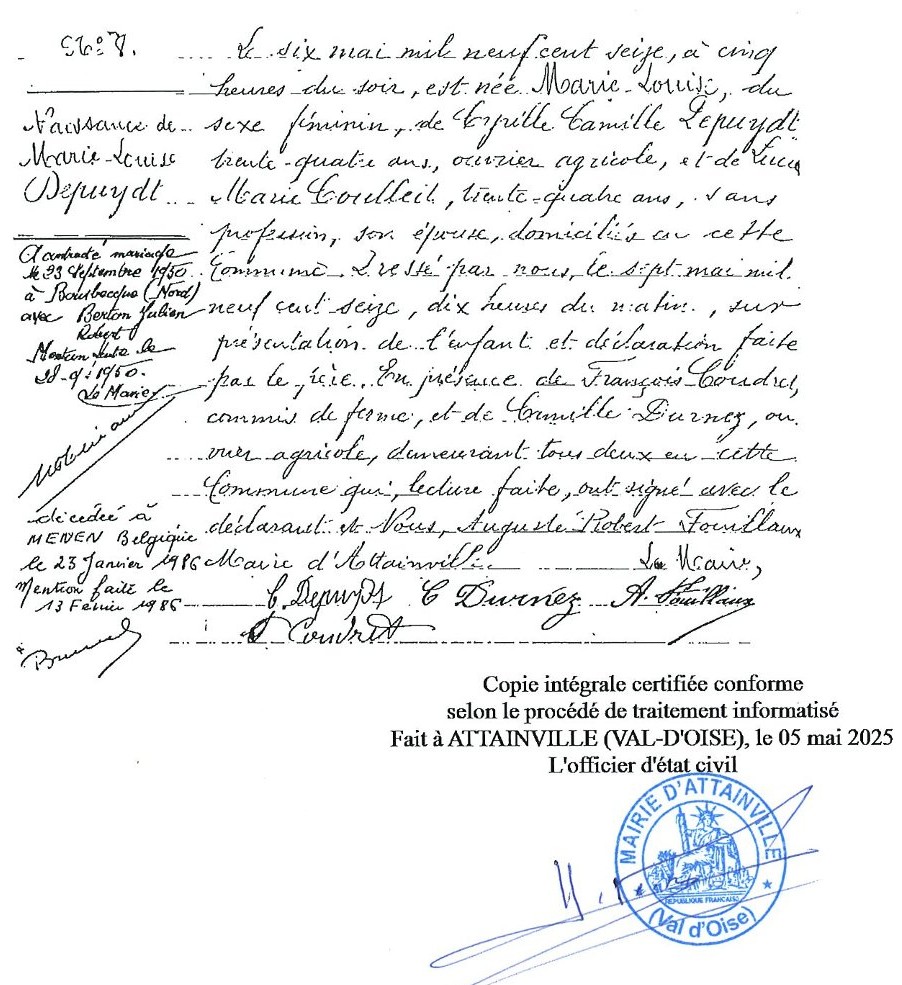 N° 7.
Naissance de
Marie-Louise
Depuydt
Contracté mariage
le 23 Septembre 1950
à Bousbecque (Nord)
avec Berton Julien
Robert
Mention faite le
28-9-1950.
Le Maire,
décédée à
MENEN Belgique
le 23 Janvier 1986
Mention faite le
13 Février 1986
Le six mai mil neuf cent seize, à cinq
heures du soir, est née Marie-Louise, du
sexe féminin, de Cyrille Camille Depuydt
trente-quatre ans, ouvrier agricole, et de Lucie
Marie, trente-quatre ans, sans
profession, son épouse, domiciliés en cette
Commune. Dressé par nous, le sept mai mil
neuf cent seize, dix heures du matin, sur
présentation de l'enfant et déclaration faite
par le père. En présence de François Coudret,
commis de ferme, et de Camille Durnez, ou
vrier agricole, demeurant tous deux en cette
Commune qui, lecture faite, ont signé avec le
déclarant et Nous, Auguste Robert Fouillaux
Maire d'Attainville. Le Maire,
C. Depuydt C Durnez A. Fouillaux
F Coudret
Copie intégrale certifiée conforme
selon le procédé de traitement informatisé
Fait à ATTAINVILLE (VAL-D'OISE), le 05 mai 2025
L'officier d'état civil
MAIRIE D'ATTAINVILLE
REPUBLIQUE FRANCAISE
(Val d'Oise)